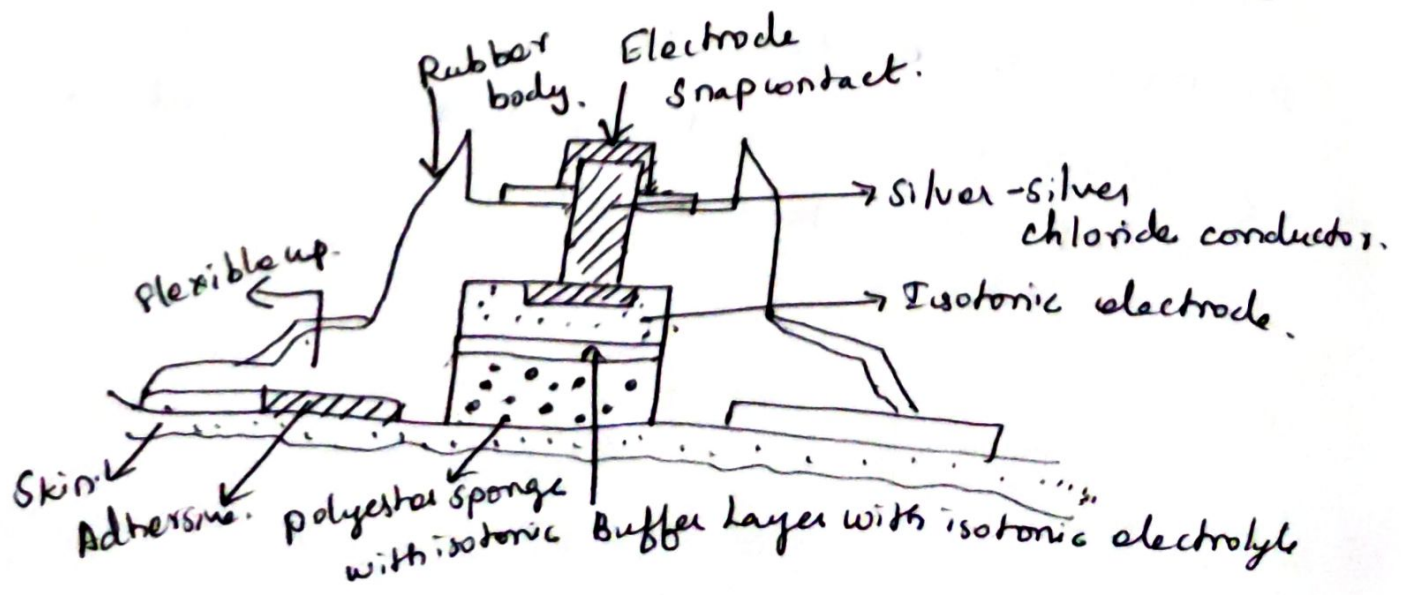 Rubber
body.
Electrode
Snapcontact.
Silver-Silver
chloride conductor.
Flexible up.
Isotonic electrode.
Skin.
Adhersive.
polyester sponge
with isotonic
Buffer Layer with isotonic electrolyte